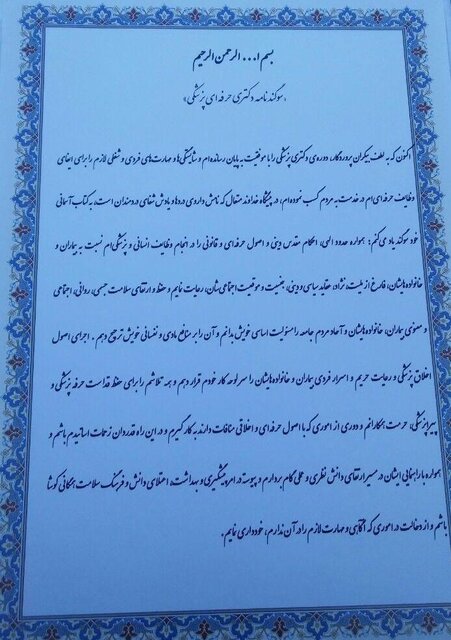 بسم ا... الرحمن الرحیم
«سوگندنامه دکتری حرفه‌ای پزشکی»
اکنون که به لطف بیکران پروردگار، دوره‌ی دکتری پزشکی را با موفقیت به پایان رسانده‌ام و شایستگی‌ها و مهارت‌های فردی و شغلی لازم را برای ایفای
وظایف حرفه‌ای‌ام در خدمت به مردم کسب نموده‌ام، در پیشگاه خداوند متعال که نامش داروی دردها و یادش شفای دردمندان است، به کتاب آسمانی
خود سوگند یاد می‌کنم: همواره حدود الهی، احکام مقدس دینی و اصول حرفه‌ای و قانونی را در انجام وظایف انسانی و پزشکی‌ام نسبت به بیماران و
خانواده‌هایشان، فارغ از ملیت، نژاد، عقاید سیاسی و دینی، جنسیت و موقعیت اجتماعی‌شان، رعایت نمایم و حفظ و ارتقای سلامت جسمی، روانی، اجتماعی
و معنوی بیماران، خانواده‌هایشان و آحاد مردم جامعه را مسئولیت اساسی خویش بدانم و آن را بر منافع مادی و نفسانی خویش ترجیح دهم. اجرای اصول
اخلاق پزشکی و رعایت حریم و اسرار فردی بیماران و خانواده‌هایشان را سرلوحه کار خودم قرار دهم و همه تلاشم را برای حفظ قداست حرفه پزشکی و
پیراپزشکی، حرمت همکارانم و دوری از اموری که با اصول حرفه‌ای و اخلاقی منافات دارند به کار گیرم و در این راه قدردان زحمات اساتیدم باشم و
همواره با راهنمایی ایشان در مسیر ارتقای دانش نظری و عملی گام بردارم و پیوسته در امر پیشگیری و بهداشت، اعتلای دانش و فرهنگ سلامت همگانی کوشا
باشم و از دخالت در اموری که آگاهی و مهارت لازم را در آن ندارم، خودداری نمایم.